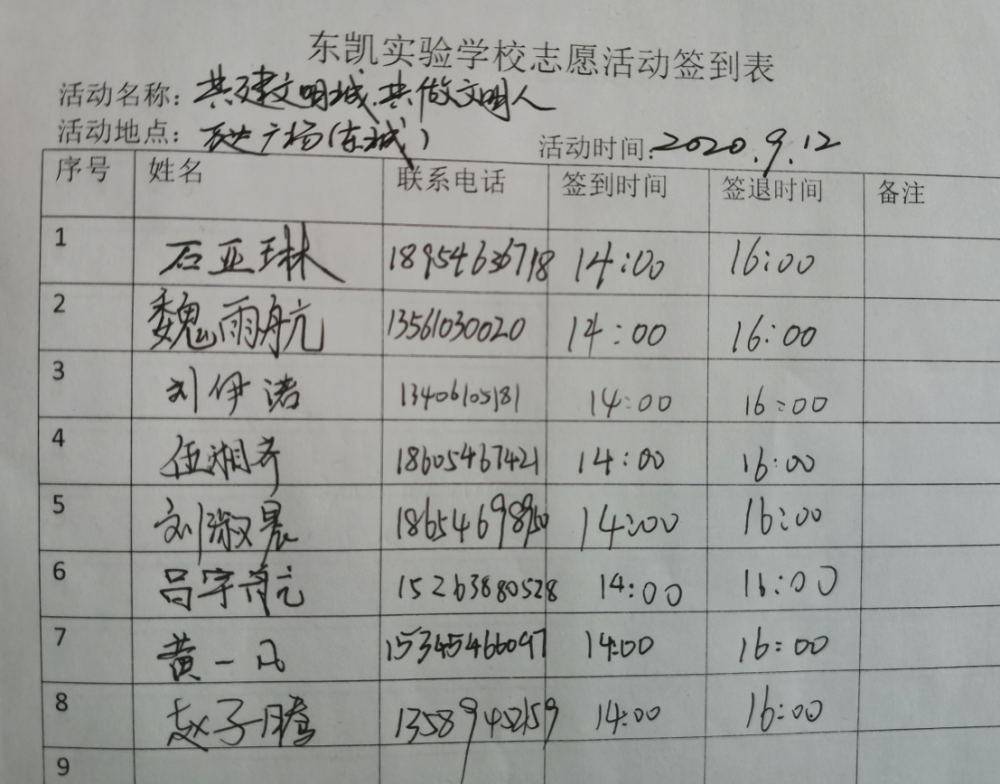 东凯实验学校志愿活动签到表
活动名称：共建文明城,共做文明人
活动地点： 广场(东城) 活动时间：2020.9.12
序号 姓名 联系电话 签到时间 签退时间 备注
1 石亚琳 18954636718 14:00 16:00
2 魏雨航 13561030020 14:00 16:00
3 刘伊诺 13406105181 14:00 16:00
4 伍湘齐 18605467421 14:00 16:00
5 刘淑晨 14:00 16:00
6 吕宇航 15263880528 14:00 16:00
7 黄一凡 15345466097 14:00 16:00
8 赵子腾 13589452159 14:00 16:00
9